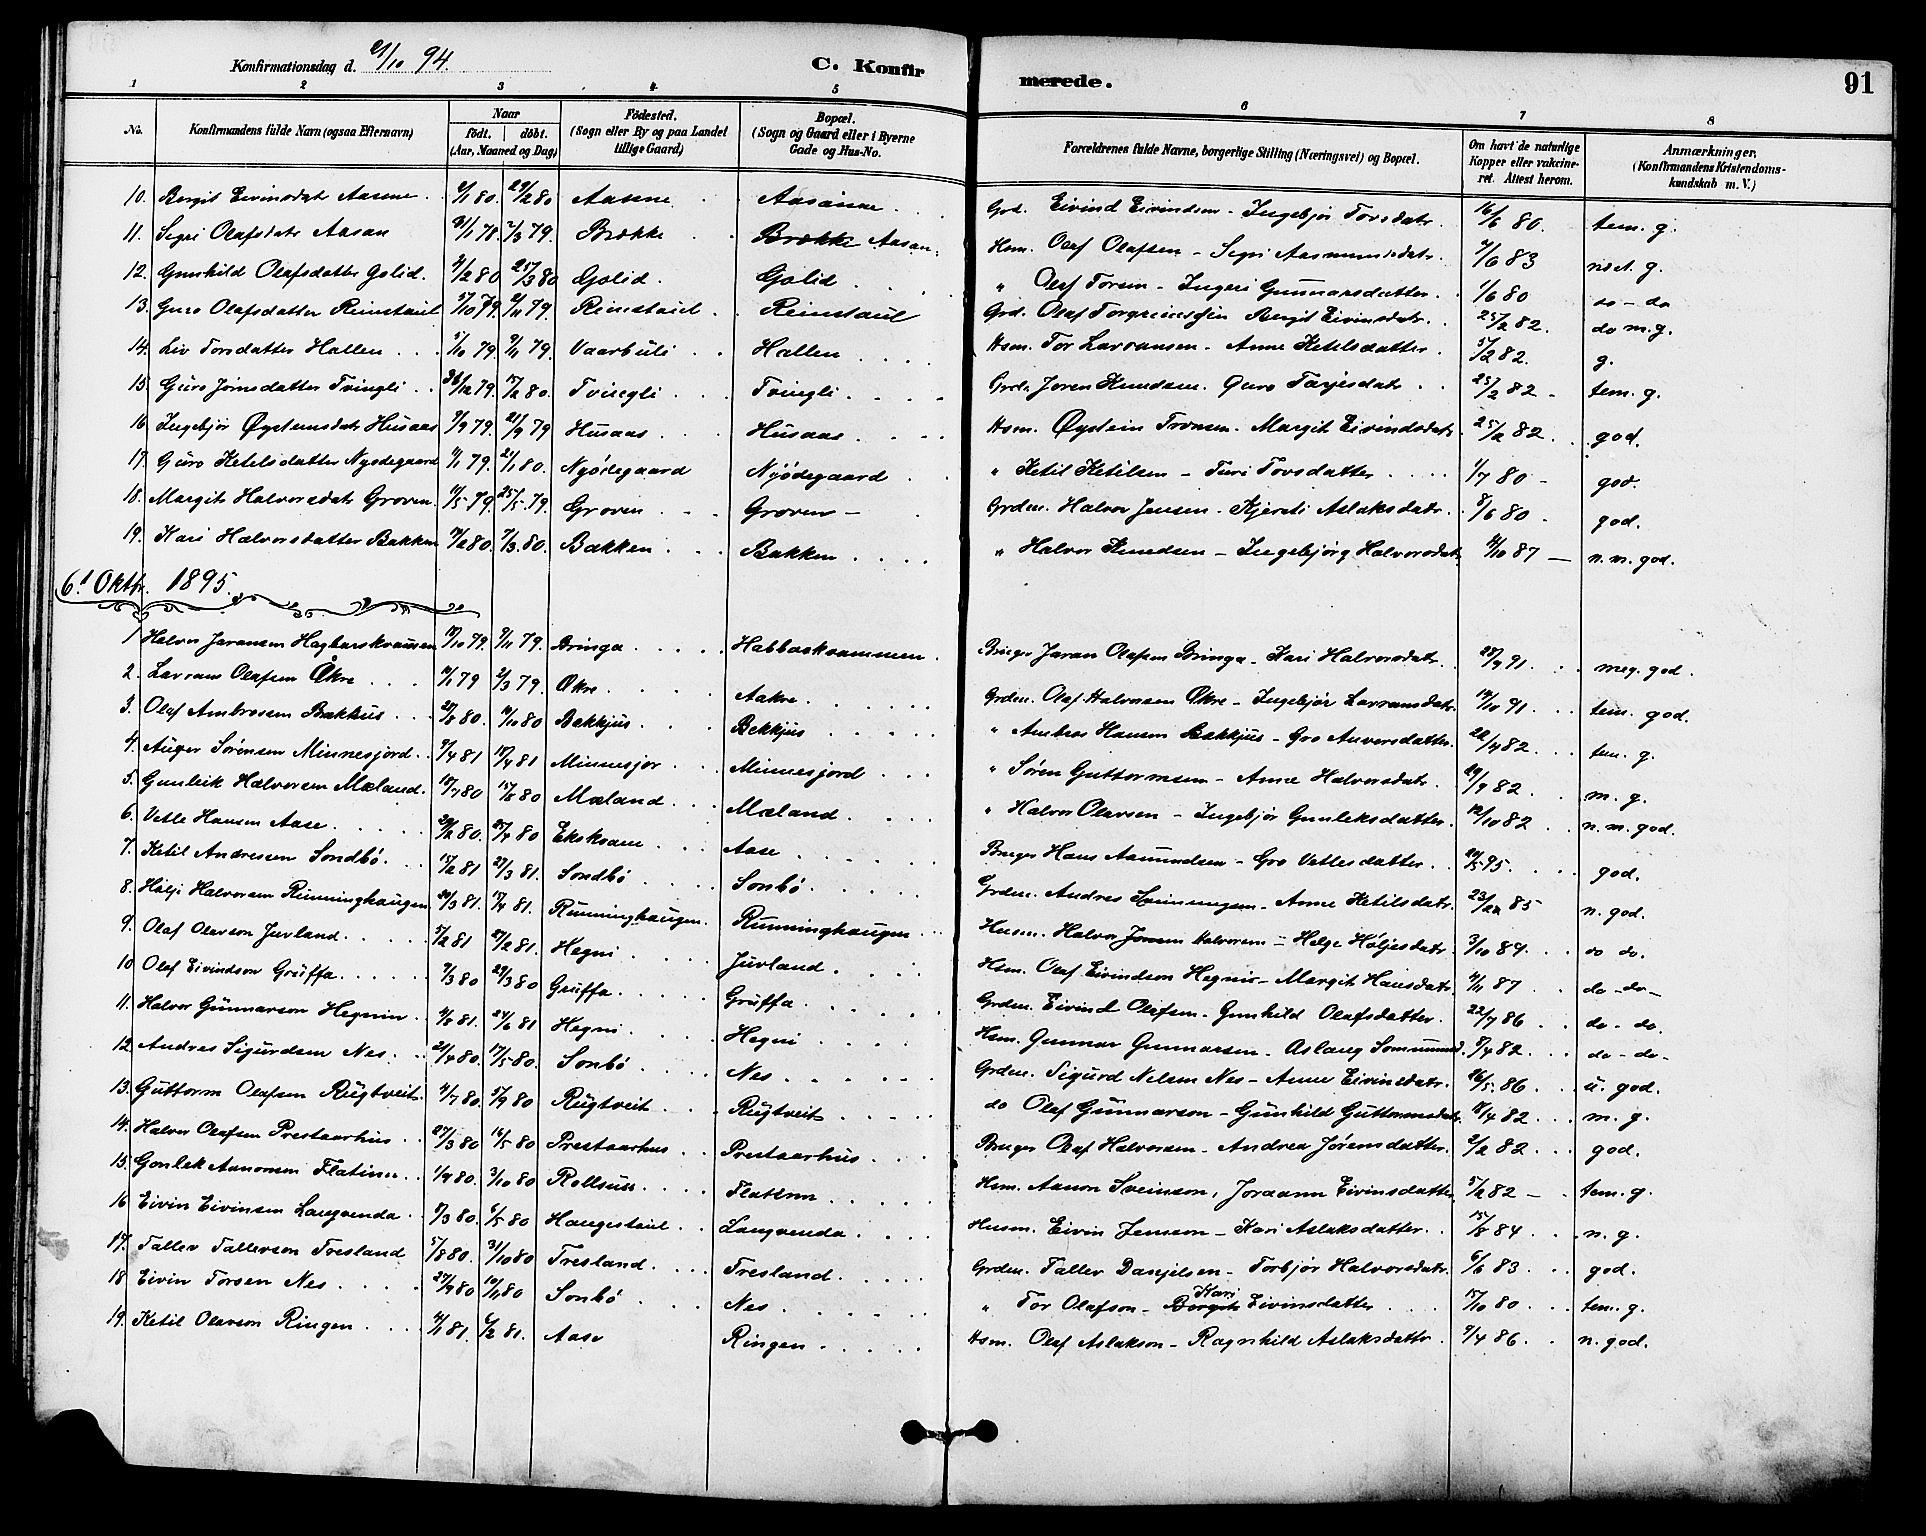 Konfirmationsdag d. /10 94. C. Konfirmerede. 91
1 2 3 4 5 6 7 8
No. Konfirmandens fulde Navn (ogsaa Efternavn) Naar födt. döbt. (Aar, Maaned og Dag) Födested. (Sogn eller By og paa Landet tillige Gaard) Bopæl. (Sogn og Gaard eller i Byerne Gade og Hus-No. Forældrenes fulde Navne, borgerlige Stilling (Næringsvei) og Bopæl. Om havt de naturlige Kopper eller vakcineret. Attest herom. Anmærkninger. (Konfirmandens Kristendomskundskab m. V.)
10. Bergit Eivinsdatr Aasene Aasene Grd. Eivind Eivindsen - Ingebjør Torsdatr. 16/6 80. tem. g.
11. Segri Olafsdatr Aasan 31/1 78. 2/3 79. Brokke Brokke Aasan Hsm. Olaf Olafsen - Segri Aasmundsdatr. /6 83 g.
12. Gunhild Olafsdatter Golid. 4/2 80 25/3 80 Golid. Golid " Olaf Torsen - Ingeri Gunnarsdatter. 1/6 80 do - do
13. Guro Olafsdatter Reinstaul /10 79. /11 79. Reinstaul Reinstaul Grd. Olaf Bergit Eivinsdatr. 25/2 82. do m. g.
14. Liv Torsdatter Hallen 5/10 79. 9/11 79. Vaarbuli Hallen Hsm. Tor Lavransen - Anne Ketelsdatter. 5/2 82. g.
15. Guro Jørnsdatter Tvingli 31/12 79. 15/2 80. Tvingli Tvingli Grd. Joren Knudsen. Guro Tarjesdatr 25/2 82 - tem. g.
16 Ingebjør Øystensdatr Husaas 9/9 79. 21/9 79 Husaas Husaas Hsm. Øystein Tronsen. Margit Eivindsdatr. 25/2 82 god.
17. Guro Ketelsdatter Nyødegaard /1 79. 21/1 80. Nyødegaard Nyødegaard " Ketil Ketilsen - Turi Tovsdatter 1/7 80 - god.
18. Margit Halvorsdatr Groven. 11/5 79. 25/5 79. Groven Groven - Grdm. Halvor Jensen - Kjersti Aslaksdatr. 8/6 80. god.
19. Kari Halvorsdatter Bakken /2 80. 7/3 80. Bakken Bakken " Halvor Knudsen - Ingebjørg Halvorsdatr. /10 87 - n. m. god.
6. Oktbr. 1895.
1 Halvor Jøransen /10 79. 9/11 79. Bringa Habbaskvammen. Bruger Jøran Olafsen Bringa - Kari Halvorsdatr. 28/9 91. meg. god.
2. Lavrans Olafsen Økre /1 79 2/3 79. Økre Aakre Grdm. Olaf Halvorsen Økre - Ingebjør Lavransdatr. 14/10 91. tem. god.
3. Olaf Ambrosen Bækkus 80. /10 80 Bekkjus Bekkjus " Ambros Hansen Bækkjus - Gro Anversdatter. 22/4 82. tem. g.
4. Auger Sørensen Minnesjord 9/4 81 17/4 81 Minnesjor Minnesjord " Søren Guttormsen - Anne Halvorsdatr. 29/9 82. m. g.
5. Gunleik Halvorsen Mæland. 17/7 80 15/8 80 Mæland Mæland " Halvor Olavsen - Ingebjør Gunleksdatter. 12/10 82 n. m. god.
6. Vetle Hansen Aase 80. 80 Ekskvam Aase Bruger Hans Aamundsen - Gro Vetlesdatter 95. god.
7. Ketil Andresen Sondbø. 15/2 81 27/3 81. Sondbø Sonbø Grdm. Andres - Anne Ketilsdatr. 85 n. god.
8. Høljè Halvorsen Runninghaugen. 20/3 81. 17/4 81. Runninghaugen Runninghaugen Husm. Halvor Halvorsen - Helge Høljesdatr. 3/10 84. do do.
9. Olaf Olavson Juvland 5/2 81 27/2 81. Hegni Juvland Hsm. Olaf Eivindson Hegni - Margit Hansdatr. 4/11 87 do - do -
10 Olaf Eivindson Gruffa. 7/3 80 29/3 80 Gruffa. Gruffa Grdm. Eivind Olafsen - Gunhild Olafsdatter. 22/7 86 do - do.
11. Halvor Gunnarson Hegnin 81. /6 81 Hegni Hegni Hsm. Gunnar Gunnarsen - Aslaug 8/4 82. do - do -
12. Andres Sigurdsen Nes. 21/4 80. 17/5 80. Sonbø Nes Grdm. Sigurd Nelsen Nes - Anne Eivinsdatr. 16/5 86. u. god.
13. Guttorm Olafsen Rugtveit. 4/7 80. 5/9 80 Rugtveit Rugtveit do Olaf Gunnarson - Gunhild Guttormsdatr. 18/4 82. m. g.
14. Halvor Olafsen Prestaarhus 27/3 80 16/5 80 Prestaarhus Prestaarhus Bruger Olaf Halvorsen - Andrea Jørensdatter. 2/2 82 god.
15. Gonlek Aanonsen Flatinn 1/9 80. 3/10 80 Flatinn Hsm. Aanon Sveinson, Joraann Eivinsdatter. 5/2 82 - tem. g.
16 Eivin Eivinsen Langvenda 8/3 80. 6/5 80 Haugestaul Langvenda Husm. Eivin Jensson - Kari Aslaksdatter 15/8 84 n. g.
17. Tallev Tallevson Tresland 5/8 80. 31/10 80 Tresland Tresland Grdm. Tallev Danjilsen - Torbjør Halvorsdatr. 6/6 83 god.
18 Eivin Torsen Nes 27/9 80 10/11 80 Sonbø Nes " Tor Olafson - Bergit Kari Eivinsdatter 17/10 80 tem. g.
19. Ketil Olavson Ringen /1 81. 6/2 81. Aase Ringen Hsm. Olaf Aslakson - Ragnhild Aslaksdattr. 9/4 86. n. god.